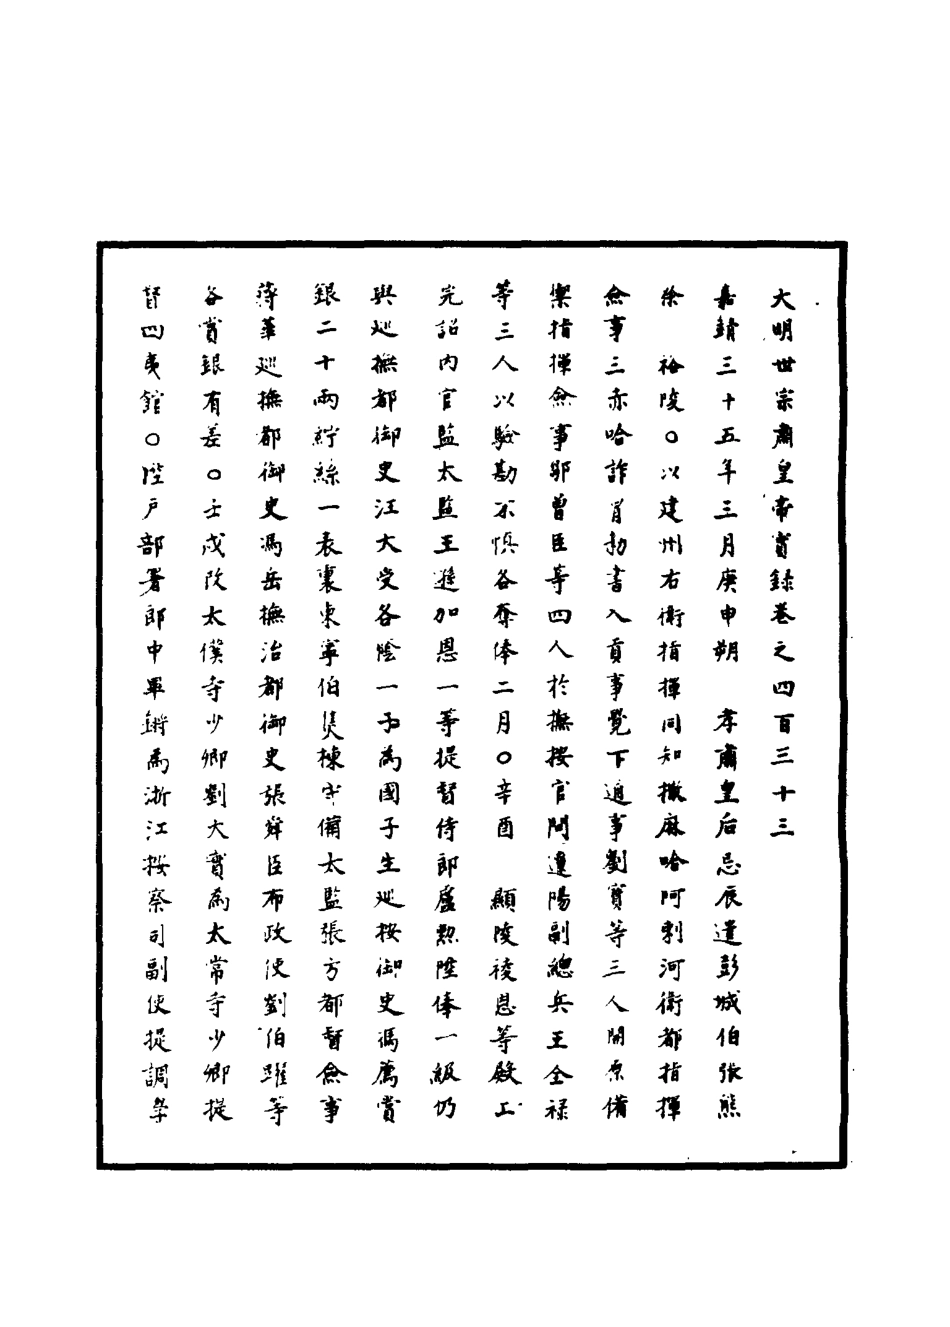 大明世宗肅皇帝實錄卷之四百三十三
嘉靖三十五年三月庚申朔　孝肅皇后忌辰遣彭城伯張熊
祭　裕陵○以建州右衛指揮同知撒麻哈阿剌河衛都指揮
僉事三赤哈詐冒勑書入貢事覺下通事劉寶等三人開原備
禦指揮僉事鄔曾臣等四人於撫按官問遼陽副總兵王全祿
等三人以驗勘不慎各奪俸二月○辛酉　顯陵祾恩等殿工
完詔內官監太監王遜加恩一等提督侍郎盧勲陞俸一級仍
與巡撫都御史汪大受各陰一子為國子生巡按御史馮薦賞
銀二十兩紵絲一表裏東寧伯焦棟守備太監張方都督僉事
蔣華巡撫都御史馮岳撫治都御史張舜臣布政使劉伯躍等
各賞銀有差○壬戌改太僕寺少卿劉大實為太常寺少卿提
督四夷館○陞戶部署郎中畢鏘為浙江按察司副使提調學